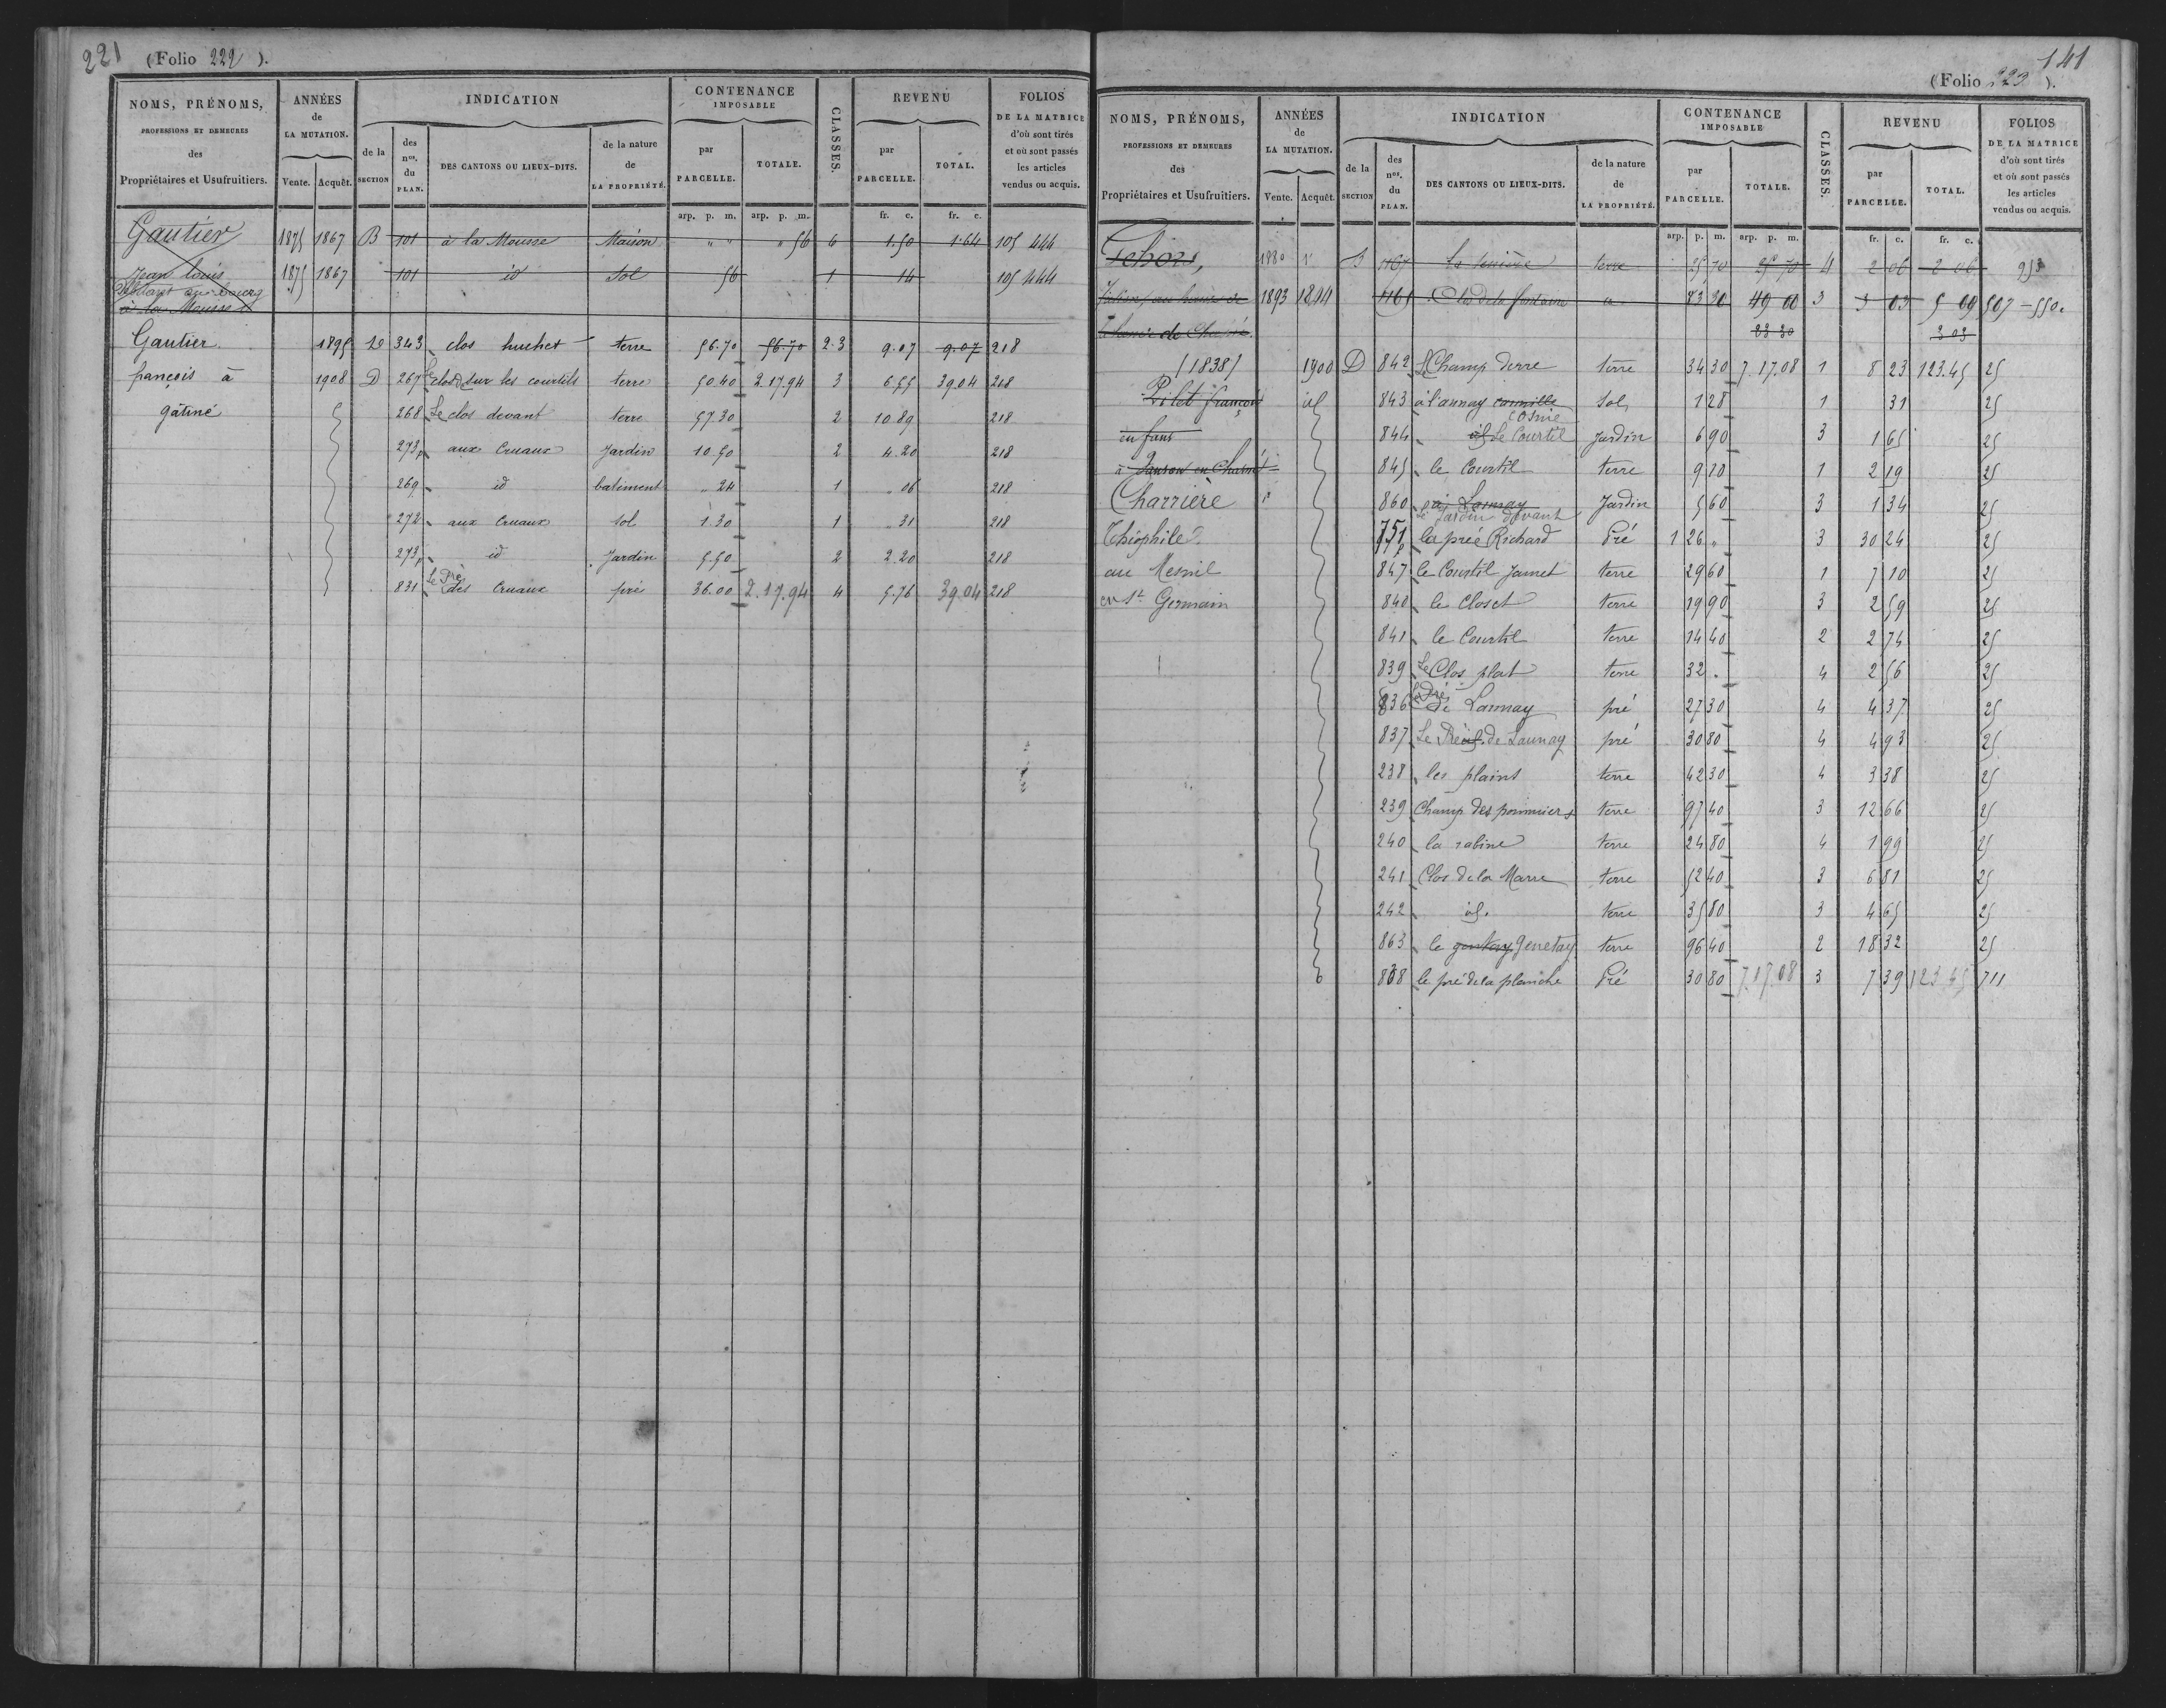 221 (Folio 222).
NOMS, PRÉNOMS, PROFESSIONS ET DEMEURES des Propriétaires et Usufruitiers. ANNÉES de LA MUTATION. Vente. Acquêt. INDICATION de la SECTION des nos. du PLAN. DES CANTONS OU LIEUX-DITS. de la nature de LA PROPRIÉTÉ. CONTENANCE IMPOSABLE par PARCELLE. TOTALE. CLASSES. REVENU par PARCELLE. TOTAL. FOLIOS DE LA MATRICE d'où sont tirés et où sont passés les articles vendus ou acquis.
arp. p. m. arp. p. m. fr. c. fr. c.
Gautier 1875 1867 B 101 à la Mousse Maison " " " 56 6 1.50 1.64 105 444
Jean Louis 1875 1867 101 id Sol 56 1 14 105 444
à la Mousse
Gautier 1895 D 343 clos huchet terre 56.70 56.70 2.3 9.07 9.07 218
françois à 1908 D 267 Le clos sur les courtils terre 50.40 2.17.94 3 6.55 39.04 218
gâtiné 268 Le clos devant terre 57.30 2 10.89 218
273p aux Cruaux Jardin 10.50 2 4.20 218
269 id batiment " 24 1 " 06 218
272 aux Cruaux sol 1.30 1 " 31 218
273p id Jardin 5.50 2 2.20 218
831 Le Pré des Cruaux pré 36.00 2.17.94 4 5.76 39.04 218
141
(Folio 223).
NOMS, PRÉNOMS, PROFESSIONS ET DEMEURES des Propriétaires et Usufruitiers. ANNÉES de LA MUTATION. Vente. Acquêt. INDICATION de la SECTION des nos. du PLAN. DES CANTONS OU LIEUX-DITS. de la nature de LA PROPRIÉTÉ. CONTENANCE IMPOSABLE par PARCELLE. TOTALE. CLASSES. REVENU par PARCELLE. TOTAL. FOLIOS DE LA MATRICE d'où sont tirés et où sont passés les articles vendus ou acquis.
arp. p. m. arp. p. m. fr. c. fr. c.
1880 B 1167 terre 25 70 25 70 4 2 06 2 06 953
1893 1844 1165 Clos de la fontaine 23 30 49 00 3 3 03 5 09 507 - 550
23 30 3 03
(1838) 1900 D 842 Le Champ Derre terre 34 30 7.17.08 1 8 23 123.45 25
Pilet françois id 843 à l'aunay Sol 1 28 1 31 25
enfans 844 id Le Courtil Jardin 6 90 3 1 65 25
à 845 le Courtil terre 9 10 1 2 19 25
Charrière 860 à Launay Le Jardin devant Jardin 5 60 3 1 34 25
Théophile 751p la prée Richard Pré 1 26 " 3 30 24 25
au Mesnil 847 le Courtil Jamet terre 29 60 1 7 10 25
en St. Germain 840 le Closet terre 19 90 3 2 59 25
841 le Courtil terre 14 40 2 2 74 25
839 Le Clos plat terre 32 . 4 2 56 25
836 Le Pré de Launay pré 27 30 4 4 37 25
837 Le Pré de Launay pré 30 80 4 4 93 25
238 les plains terre 42 30 4 3 38 25
239 Champ des pommiers terre 97 40 3 12 66 25
240 la rabine terre 24 80 4 1 99 25
241 Clos de la Marre terre 52 40 3 6 81 25
242 id. terre 35 80 3 4 65 25
863 le Genetay terre 96 40 2 18 32 25
838 le pré de la planche Pré 30 80 7.17.08 3 7 39 123 45 711